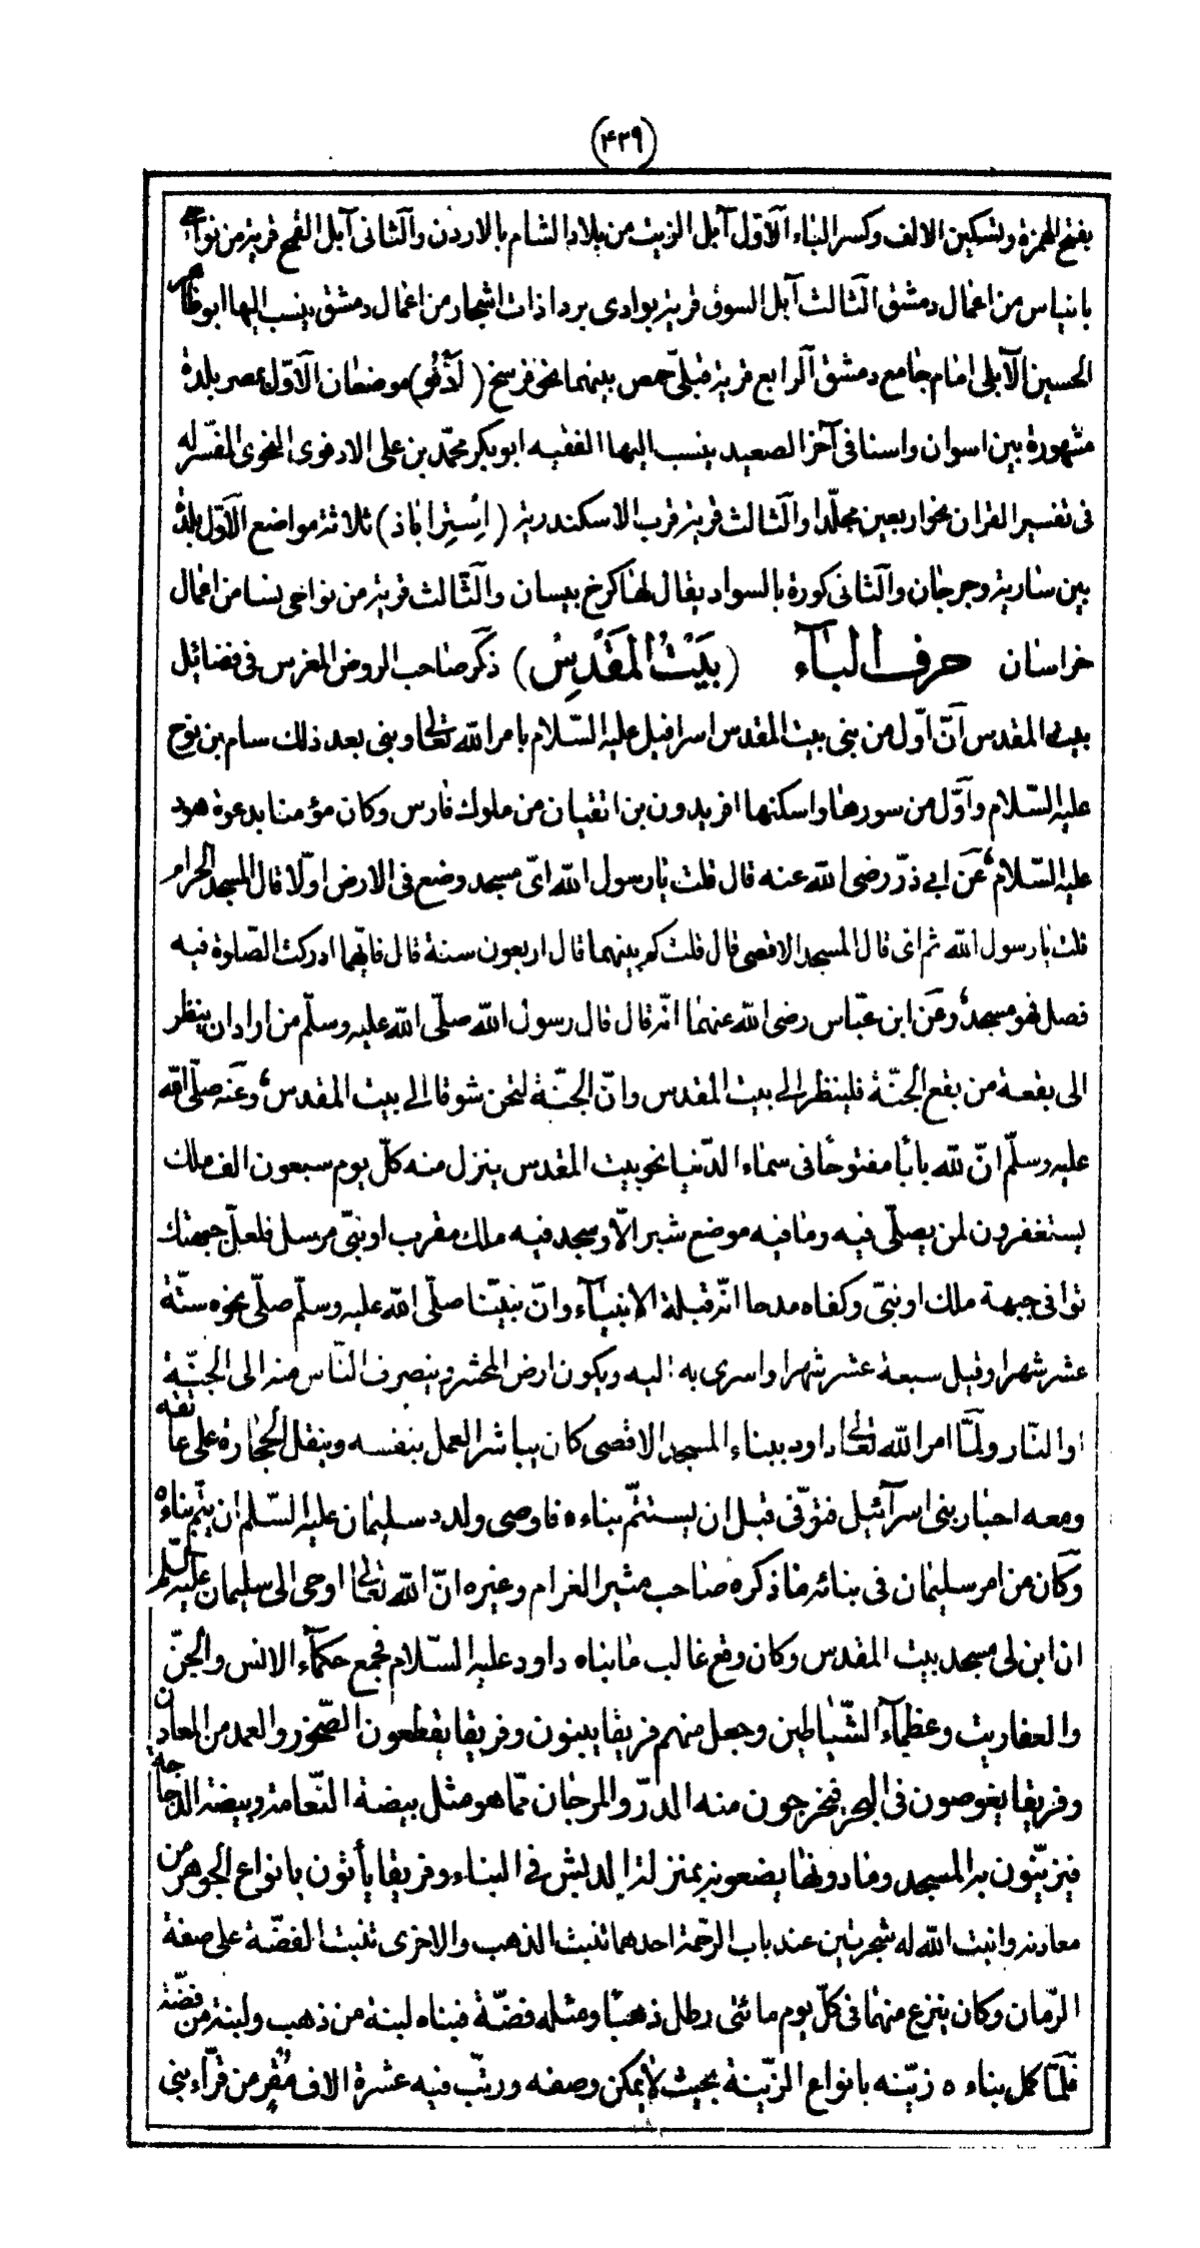 (۴۳۹)
بفتح الهمزة وتسكين الالف وكسر الباء الاوّل آبل الزيت من بلاد الشام بالاردن والثانى آبل القمح قرية من نواحى
بانياس من اعمال دمشق الثالث آبل السوق قرية بوادى بردا ذات اشجار من اعمال دمشق ينسب اليها ابو طاهر
الحسين الآبلى امام جامع دمشق الرابع قرية قبلىّ حمص بينهما نحو فرسخ (اُدْفُو) موضعان الاوّل بمصر بلدة
مشهورة بين اسوان واسنا فى آخر الصعيد ينسب اليها الفقيه ابو بكر محمّد بن على الادفوى النحوى المفسّر له
فى تفسير القران نحو اربعين مجلّدا والثالث قرية قرب الاسكندرية (اِسْتِراباذ) ثلاثة مواضع الاوّل بلدة
بين سارية وجرجان والثانى كورة بالسواد يقال لها كرخ بيسان والثّالث قرية من نواحى نسا من اعمال
خراسان حرف البآء (بَيْتُ المَقدِس) ذكر صاحب الروض المغرس فى فضائل
بيت المقدس انّ اوّل من بنى بيت المقدس اسرافيل عليه السّلام بامر الله تعالى وبنى بعد ذلك سام بن نوح
عليه السّلام واوّل من سورها واسكنها افريدون بن اثقيان من ملوك فارس وكان مؤمنا بدعوة هود
عليه السّلام ، عن ابى ذرّ رضى الله عنه قال قلت يا رسول الله اىّ مسجد وضع فى الارض اوّلا قال المسجد الحرام
قلت يا رسول الله ثم اى قال المسجد الاقصى قال قلت كم بينهما قال اربعون سنة قال فايّما ادركت الصّلوة فيه
فصل فهو مسجد ، وعن ابن عبّاس رضى الله عنهما انّه قال قال رسول الله صلّى الله عليه وسلّم من اراد ان ينظر
الى بقعة من بقع الجنّة فلينظر الى بيت المقدس وانّ الجنّة لتحن شوقا الى بيت المقدس ، وعنه صلّى الله
عليه وسلّم انّ لله بابًا مفتوحًا فى سماء الدّنيا نحو بيت المقدس ينزل منه كلّ يوم سبعون الف ملك
يستغفرون لمن يصلّى فيه وما فيه موضع شبر الّا وسجد فيه ملك مقرب او نبىّ مرسل فلعلّ جبهتك
توافى جبهة ملك او نبىّ وكفاه مدحا انّه قبلة الانبيآء وانّ نبيّنا صلّى الله عليه وسلّم صلّى نحوه ستّة
عشر شهرا وقيل سبعة عشر شهرا واسرى به اليه ويكون ارض المحشر وينصرف النّاس منه الى الجنّة
او النّار ولمّا امر الله تعالى داود ببناء المسجد الاقصى كان يباشر العمل بنفسه وينقل الحجارة على عاتقه
ومعه احبار بنى اسرآئيل فتوفّى قبل ان يستتمّ بناءه فاوصى ولده سليمان عليه السّلم ان يتم بناءه
وكان من امر سليمان فى بنائه ما ذكره صاحب مثير الغرام وغيره انّ الله تعالى اوحى الى سليمان عليه السّلم
ان ابن لى مسجد بيت المقدس وكان وقع غالب ما بناه داود عليه السّلام فجمع حكمآء الانس والجنّ
والعفاريت وعظمآء الشّياطين وجعل منهم فريقا يبنون وفريقا يقطعون الصّخور والعمد من المعادن
وفريقا يغوصون فى البحر فيخرجون منه الدرّ والمرجان ممّا هو مثل بيضة النّعامة وبيضة الدجاجة
فيزيّنون به المسجد وما دونها يضعونه بمنزلة الدبش فى البناء وفريقا يأتون بانواع الجوهر من
معادنه وانبت الله له شجرتين عند باب الرحمة احدهما تنبت الذهب والاخرى تنبت الفضّة على صفة
الرّمان وكان ينزع منهما فى كلّ يوم مائتى رطل ذهبًا ومثله فضّة فبناه لبنة من ذهب ولبنة من فضّة
فلمّا كمل بناءه زيّنه بانواع الزّينة بحيث لا يمكن وصفه ورتّب فيه عشرة الاف مُقرٍ من قرّاء بنى